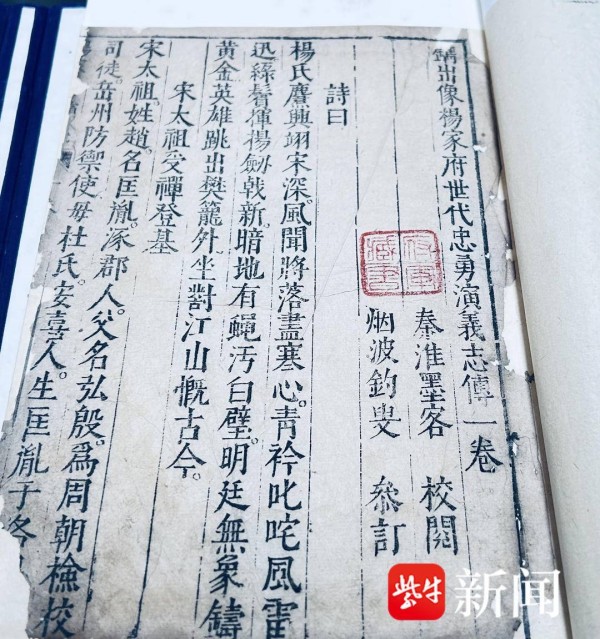 鐫出像楊家府世代忠勇演義志傳一卷
秦淮墨客 校閱
烟波釣叟 叅訂
詩曰
楊氏麐興翊宋深。風聞將落盡寒心。青衿叱咤風雷
迅。綠鬢揮楊劒戟新。暗地有蠅汚白璧。明廷無象鑄
黃金英雄跳出樊籠外坐對江山慨古今。
宋太祖受禪登基
宋太祖。姓趙。名匡胤。涿郡人。父名弘殷。爲周朝檢校
司徒。岳州防禦使母杜氏。安喜人。生匡胤于洛
紫牛新闻